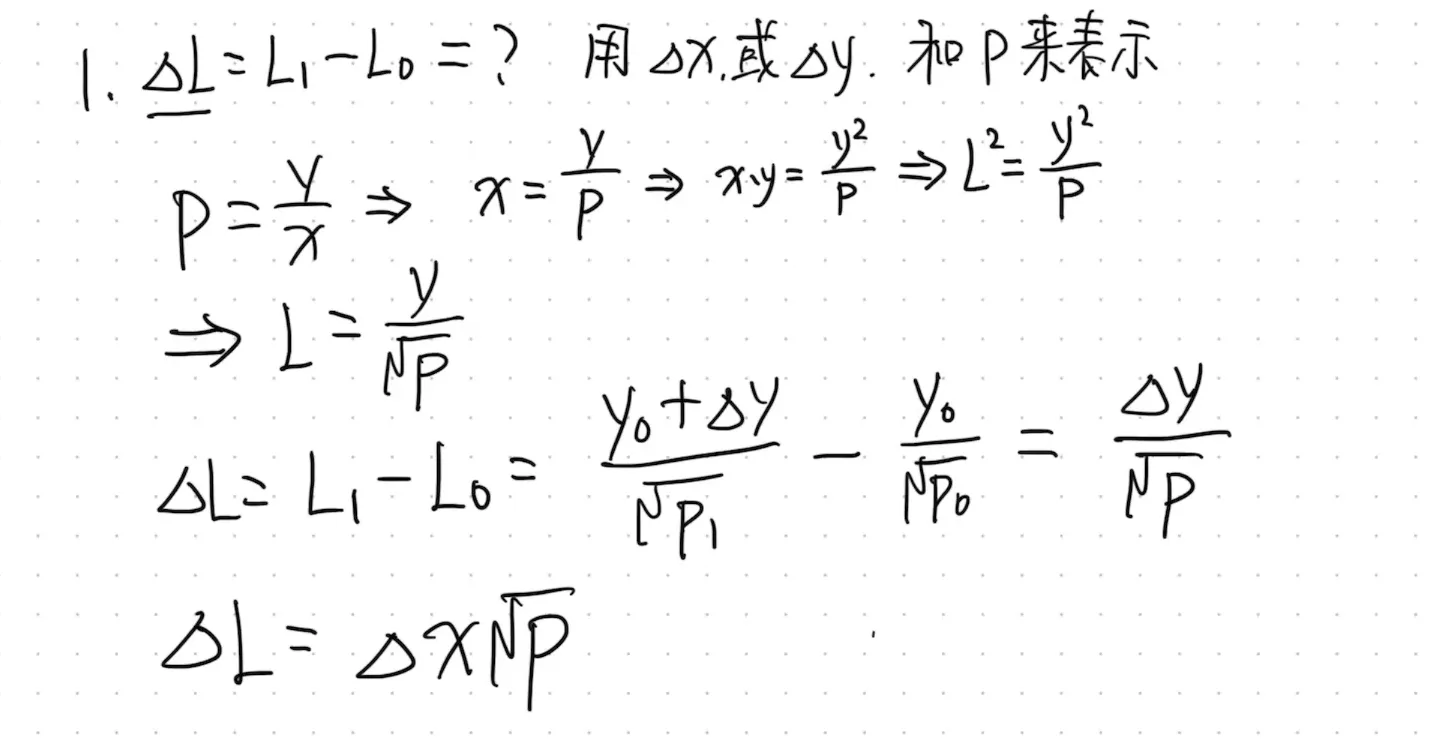 1. ΔL = L₁ - L₀ = ? 用 Δx. 或 Δy. 和 P 来表示
P = y/x ⇒ x = y/P ⇒ x·y = y²/P ⇒ L² = y²/P
⇒ L = y/√P
ΔL = L₁ - L₀ = (y₀ + Δy)/√P₁ - y₀/√P₀ = Δy/√P
ΔL = Δx√P